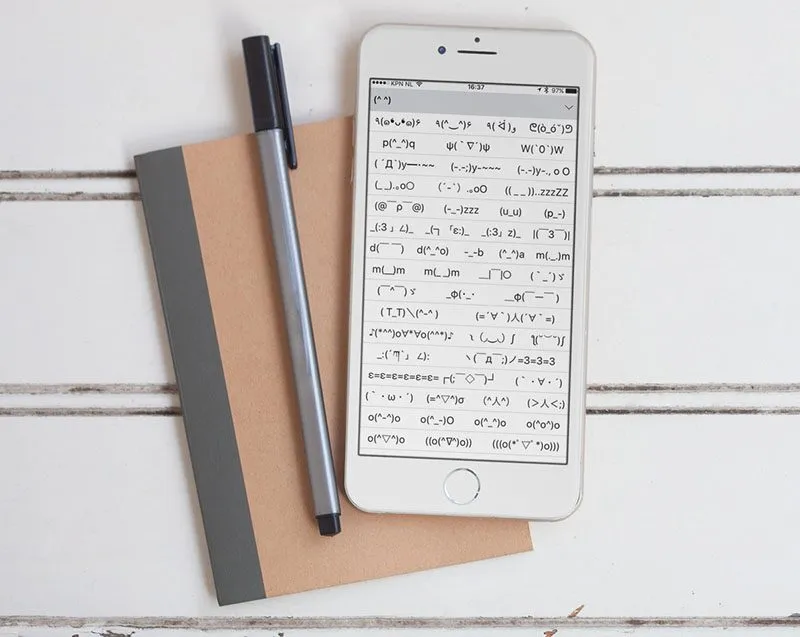 KPN NL 16:37 97%
(^ ^)
٩(๑❛ᴗ❛๑)۶ ٩(^‿^)۶ ٩( ᐛ )و ᕦ(ò_óˇ)ᕤ
p(^_^)q ψ(｀∇´)ψ W(`0`)W
( ´Д`)y━･~~ (-.-;)y-~~~ (-.-)y-., o O
(_ _).｡o○ (´-`) .｡oO ((_ _))..zzzZZ
(@￣ρ￣@) (-_-)zzz (u_u) (p_-)
_(:3」∠)_ _(┐「ε:)_ _(:3」z)_ |(￣3￣)|
d(￣ ￣) d(^_^o) -_-b (^_^)a m(._.)m
m(__)m m(_ _)m __|￣|○ ( ˘_˘ )ゞ
(￣^￣)ゞ _φ(･_･ __φ(￣ー￣ )
( T_T)＼(^-^ ) (=´∀｀)人(´∀｀=)
♪(*^^)o∀*∀o(^^*)♪ ʅ(◞‿◟)ʃ ƪ(˘⌣˘)ʃ
_:(´ཀ`」 ∠): ヽ(￣д￣;)ノ=3=3=3
ε=ε=ε=ε=ε=ε=┌(;￣◇￣)┘ (｀・∀・´)
(｀・ω・´) (=^▽^)σ (^人^) (＞人＜;)
o(^-^)o o(^_-)O o(^_^)o o(^o^)o
o(^▽^)o ((o(^∇^)o)) (((o(*ﾟ▽ﾟ*)o)))